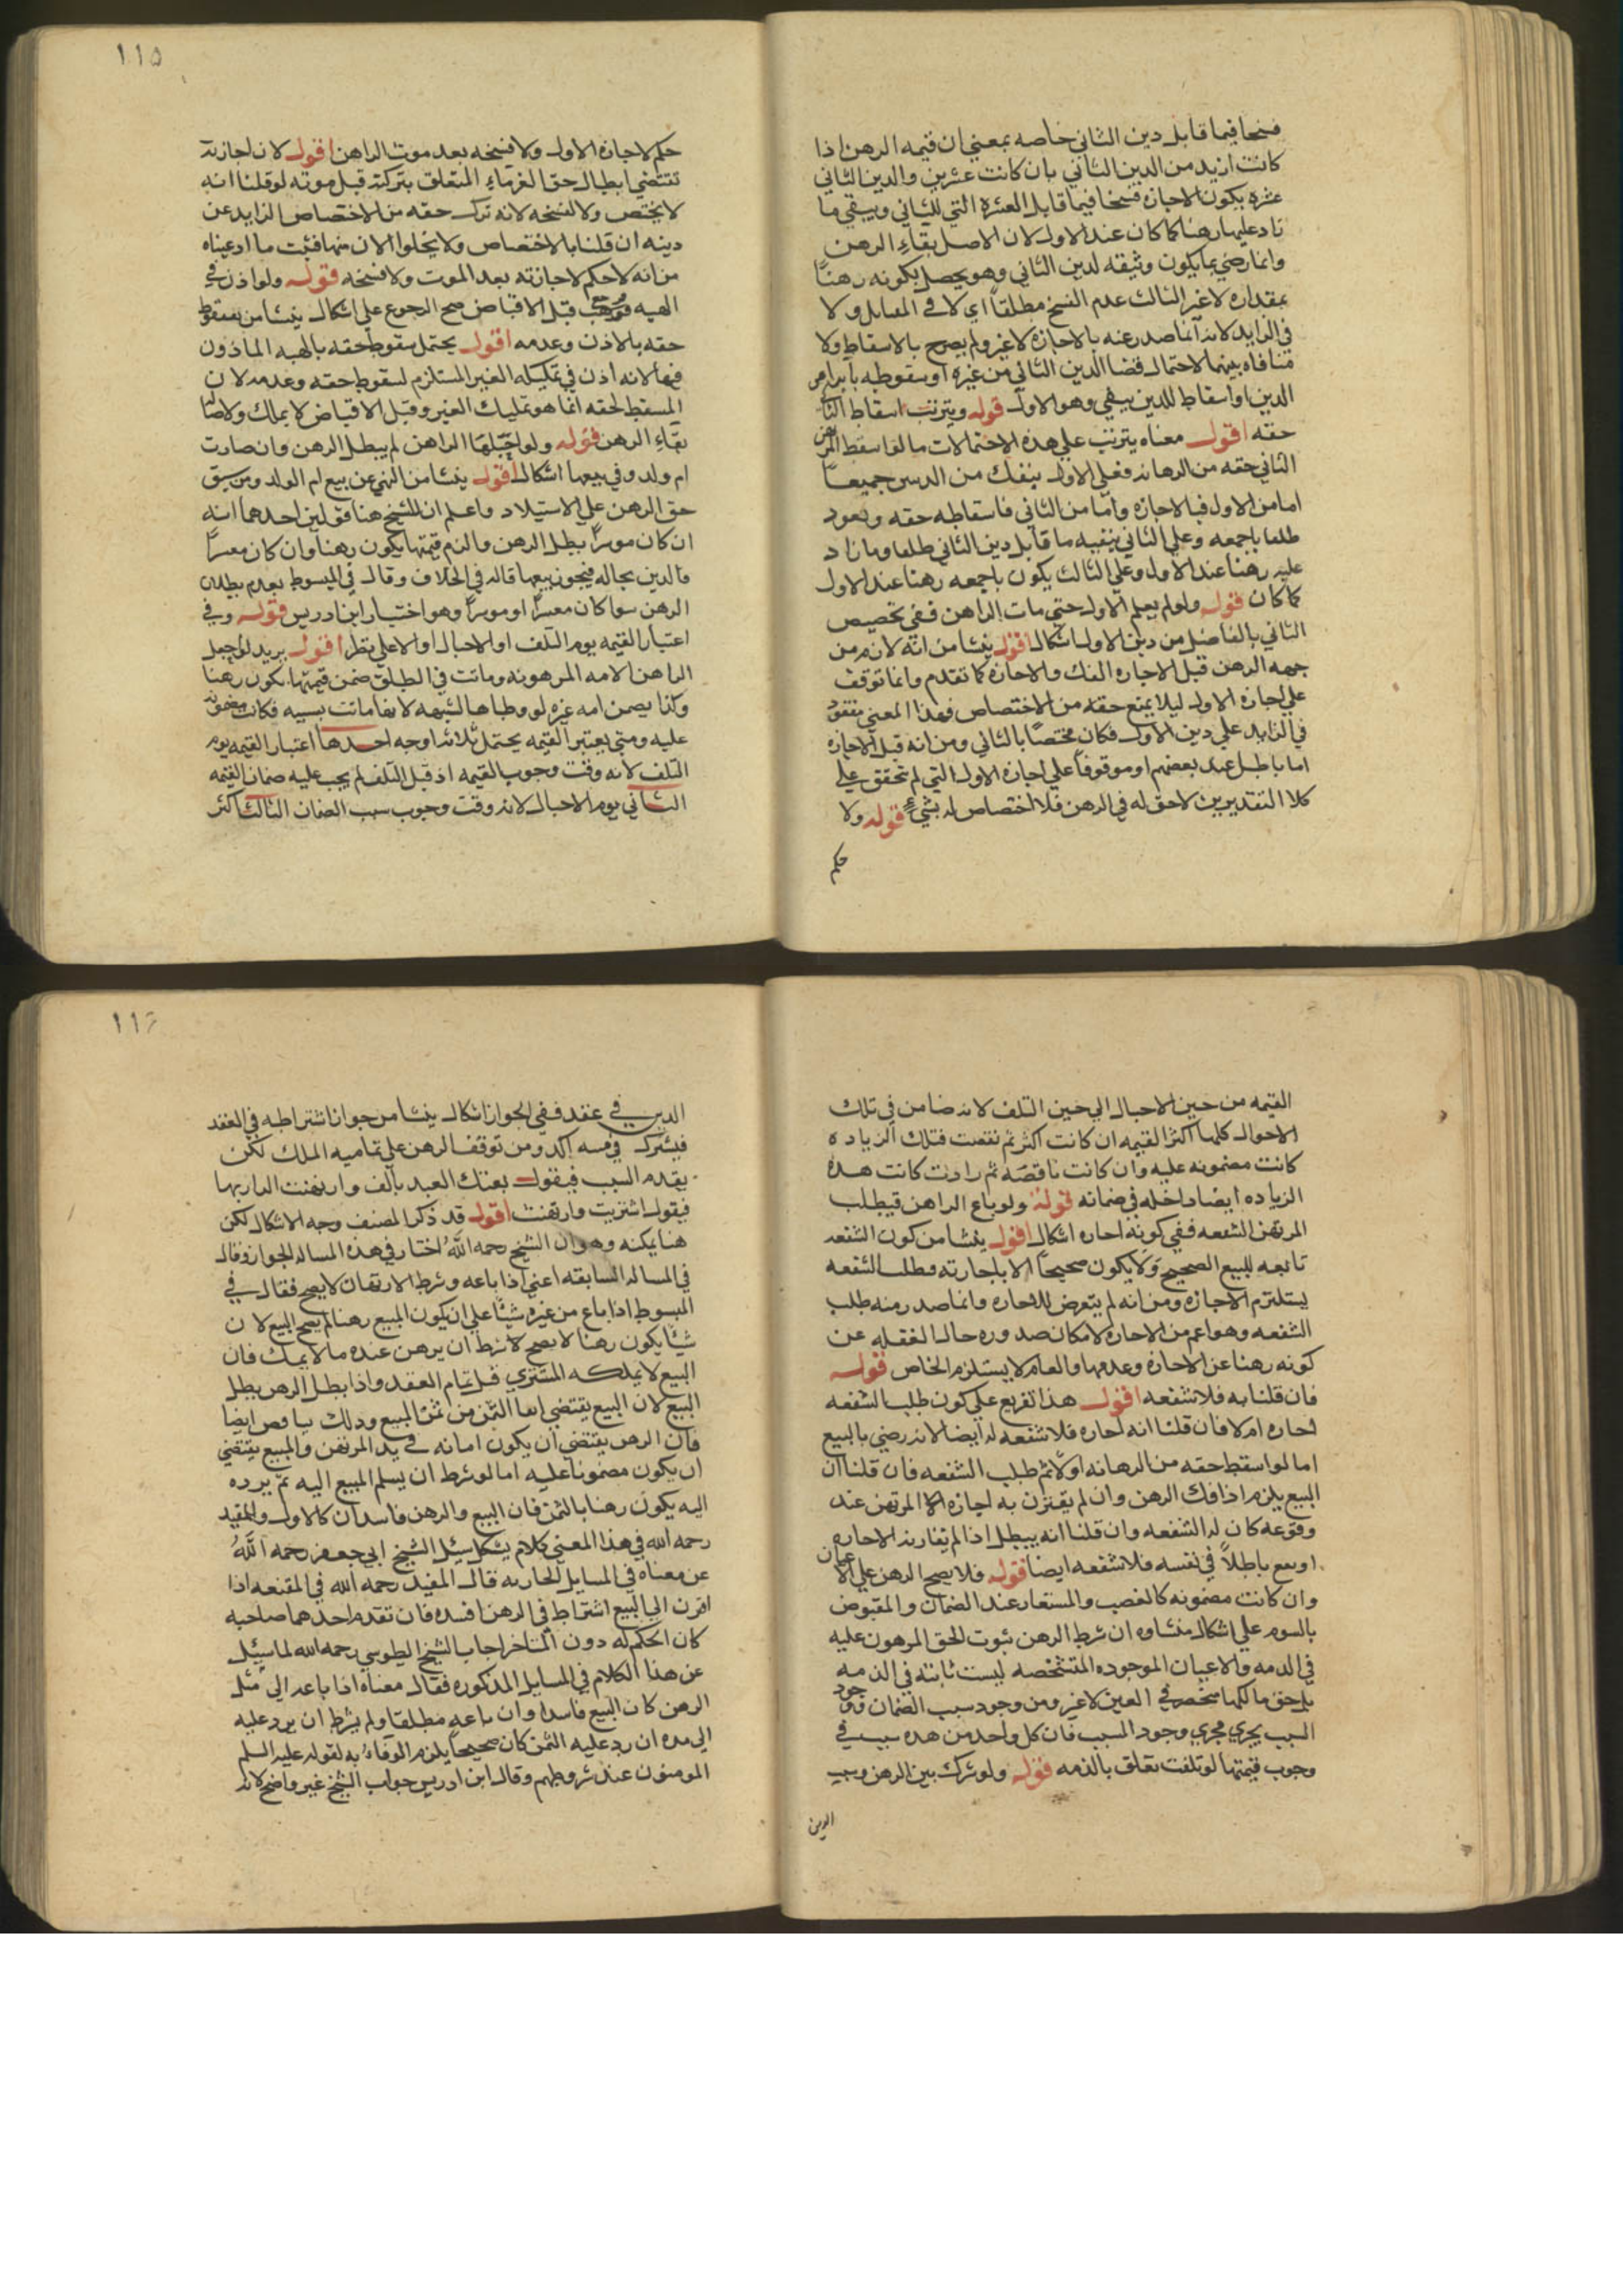 فسخا فيما قابل دين الثاني خاصه بمعني ان قيمه الرهن اذا
كانت ازيد من الدين الثاني بان كانت عشرين والدين الثاني
عشره يكون الاجازه فسخا فيما قابل العشره التي للثاني ويبقي ما
زاد عليها رهنا كما كان عند الاول لان الاصل بقاء الرهن
وانما رضي بما يكون وثيقه لدين الثاني وهو يحصل بكونه رهنًا
بمقداره لا غير الثالث عدم الفسخ مطلقًا اي لا في المقابل ولا
في الزايد لانه انما صدر عنه بالاجازه لا غير ولم يصرح بالاسقاط ولا
منافاه بينهما لاحتمال قضا الدين الثاني من غيره او سقوطه بابرا من
الدين او اسقاط للدين يبقي وهو الاول قوله ويترتب اسقاط الثا
حقه اقول معناه يترتب علي هذه الاحتمالات ما لو اسقط المرتهن
الثاني حقه من الرهانه فعلي الاول ينفك من الدينين جميعًا
اما من الاول فبالاجازه واما من الثاني فاسقاطه حقه ويعود
طلقا باجمعه وعلي الثاني يبقيه ما قابل دين الثاني طلقا وما زاد
عليه رهنا عند الاول وعلي الثالث يكون باجمعه رهنا عند الاول
كما كان قوله ولو لم يعلم الاول حتي مات الراهن ففي تخصيص
الثاني بالفاضل من دين الاول اشكال اقول ينشا من انه لازم من
جهه الرهن قبل الاجازه الفك والاجازه كما تقدم وانما توقف
علي اجازه الاول ليلا يمنع حقه من الاختصاص فهذا المعني مفقود
في الزايد علي دين الاول فكان مختصًا بالثاني ومن انه قبل الاجازه
اما باطل عند بعضهم او موقوفًا علي اجازه الاول التي لم تتحقق علي
كلا التقديرين لا حق له في الرهن فلا اختصاص له بشيءٍ قوله ولا
حكم
١١٥
حكم لاجازه الاول ولا فسخه بعد موت الراهن اقول لان اجازته
تقتضي ابطال حق الغرماء المتعلق بتركته قبل موته لو قلنا انه
لا يختص ولا لفسخه لانه ترك حقه من الاختصاص الزايد عن
دينه ان قلنا بالاختصاص ولا يخلوا الان منهما فثبت ما ادعيناه
من انه لا حكم لاجازته بعد الموت ولا فسخه قوله ولو اذن في
الهبه فوهب قبل الاقباض صح الرجوع علي اشكال ينشا من سقوط
حقه بالاذن وعدمه اقول يحتمل سقوط حقه بالهبه الماذون
فيها لانه اذن في تمليكه الغير المستلزم لسقوط حقه وعدمه لان
المسقط لحقه انما هو تمليك الغير وقبل الاقباض لا يملك ولاصاله
بقاء الرهن قوله ولو احبلها الراهن لم يبطل الرهن وان صارت
ام ولد وفي بيعها اشكال اقول ينشا من النهي عن بيع ام الولد ومن سبق
حق الرهن علي الاستيلاد واعلم ان للشيخ هنا قولين احدهما انه
ان كان موسرًا بطل الرهن والزم قيمتها يكون رهنا وان كان معسرًا
فالدين بحاله فيجوز بيعها قاله في الخلاف وقال في المبسوط بعدم بطلان
الرهن سوا كان معسرًا او موسرًا وهو اختيار ابن ادريس قوله وفي
اعتبار القيمه يوم التلف او الاحبال او الاعلي نظر اقول يريد لو احبل
الراهن الامه المرهونه وماتت في الطلق ضمن قيمتها يكون رهنا
وكذا يضمن امه غيره لو وطيها لشبهه لانها ماتت بسببه فكانت مضمونه
عليه ومتي يعتبر القيمه يحتمل ثلاثه اوجه احدها اعتبار القيمه يوم
التلف لانه وقت وجوب القيمه اذ قبل التلف لم يجب عليه ضمان القيمه
الثاني يوم الاحبال لانه وقت وجوب سبب الضمان الثالث اكثر
القيمه من حين الاحبال الي حين التلف لانه ضامن في تلك
الاحوال كلها اكثر القيمه ان كانت اكثر ثم نقصت فتلك الزياده
كانت مضمونه عليه وان كانت ناقصه ثم زادت كانت هذه
الزياده ايضا داخله في ضمانه قوله ولو باع الراهن فيطلب
المرتهن الشفعه ففي كونه اجازه اشكال اقول ينشا من كون الشفعه
تابعه للبيع الصحيح ولا يكون صحيحًا الا باجازته فطلب الشفعه
يستلزم الاجازه ومن انه لم يتعرض للاجازه وانما صدر منه طلب
الشفعه وهو اعم من الاجازه لامكان صدوره حال الغفله عن
كونه رهنا عن الاجازه وعدمها والعام لا يستلزم الخاص قوله
فان قلنا به فلا شفعه اقول هذا تفريع علي كون طلب الشفعه
اجازه ام لا فان قلنا انه اجازه فلا شفعه له ايضا لانه رضي بالبيع
اما لو اسقط حقه من الرهانه اولًا ثم طلب الشفعه فان قلنا ان
البيع يلزم اذا فك الرهن وان لم يقترن به اجازه الا المرتهن عند
وقوعه كان له الشفعه وان قلنا انه يبطل اذا لم يقارنه الاجازه
او يقع باطلًا في نفسه فلا شفعه ايضا قوله فلا يصح الرهن علي الاعيان
وان كانت مضمونه كالغصب والمستعار عند الضمان والمقبوض
بالسوم علي اشكال منشاوه ان شرط الرهن ثبوت الحق المرهون عليه
في الذمه والاعيان الموجوده المتشخصه ليست ثابته في الذمه
بل حق مالكها منحصر في العين لا غير ومن وجود سبب الضمان ووجود
السبب يجري مجري وجود المسبب فان كل واحد من هذه سبب في
وجوب قيمتها لو تلفت تعلق بالذمه قوله ولو شرك بين الرهن وسبب
الدين
١١٦
الدين في عقد ففي الجواز اشكال ينشا من جواز اشتراطه في العقد
فيشترك في متنه اكد ومن توقف الرهن علي تماميه الملك لكن
يقدم السبب فيقول بعتك العبد بالف وارتهنت الدار بها
فيقول اشتريت وارتهنت اقول قد ذكر المصنف وجه الاشكال لكن
هنا يمكنه وهو ان الشيخ رحمه الله اختار في هذه المساله الجواز وقال
في المساله السابقه اعني اذا باعه وشرط الارتهان لا يصح فقال في
المبسوط اذا باع من غيره شيئًا علي ان يكون المبيع رهنا لم يصح البيع لان
شيئا يكون رهنا لا يصح لا شرط ان يرهن عنده ما لا يملك فان
البيع لا يملكه المشتري قبل تمام العقد واذا بطل الرهن بطل
البيع لان البيع يقتضي ايفا الثمن من ثمن المبيع وذلك تناقض ايضا
فان الرهن يقتضي ان يكون امانه في يد المرتهن والمبيع يقتضي
ان يكون مضمونا عليه اما لو شرط ان يسلم المبيع اليه ثم يرده
اليه يكون رهنا بالثمن فان البيع والرهن فاسدان كالاول وللمفيد
رحمه الله في هذا المعني كلام يشكل سيل الشيخ ابي جعفر رحمه الله
عن معناه في المسايل الحايريه قال المفيد رحمه الله في المقنعه اذا
اقرن الي البيع اشتراط في الرهن افسده فان تقدم احدهما صاحبه
كان الحكم له دون المتاخر اجاب الشيخ الطوسي رحمه الله لما سيل
عن هذا الكلام في المسايل المذكوره فقال معناه اذا باعه الي مثل
الرهن كان البيع فاسدا وان باعه مطلقا ولم يشرط ان يرد عليه
الي مده ان رد عليه الثمن كان صحيحًا يلزم الوفاء به لقوله عليه السلم
المومنون عند شروطهم وقال ابن ادريس جواب الشيخ غير واضح لانه